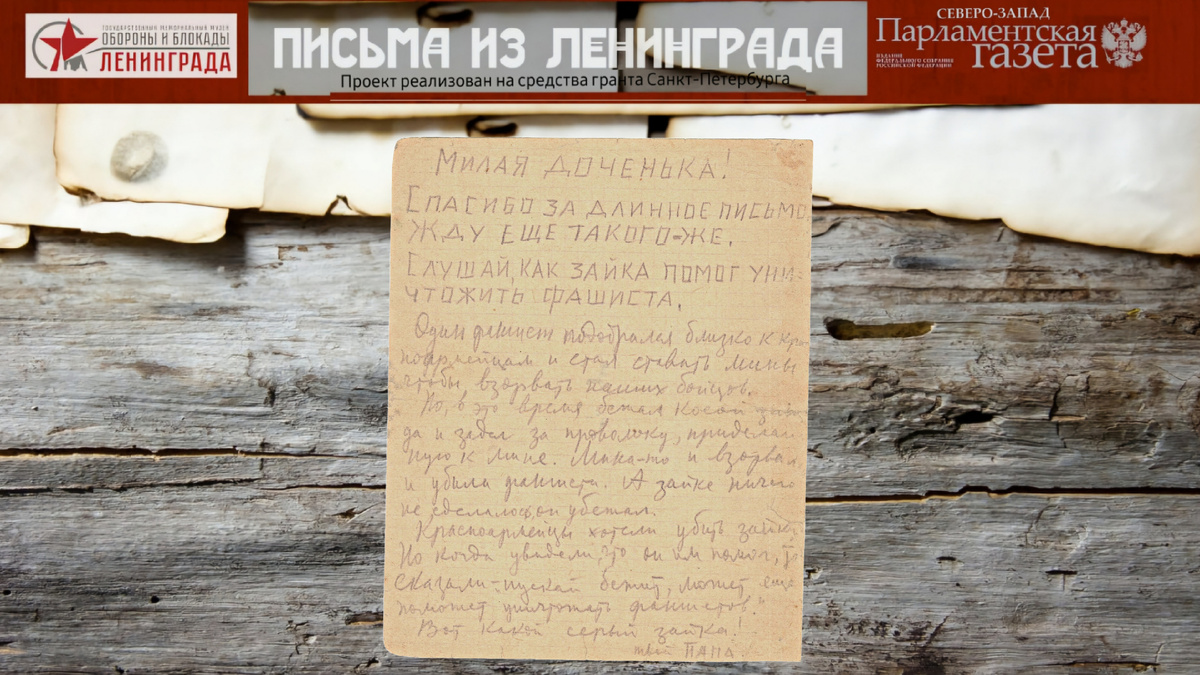 ГОСУДАРСТВЕННЫЙ МЕМОРИАЛЬНЫЙ МУЗЕЙ
ОБОРОНЫ И БЛОКАДЫ
ЛЕНИНГРАДА
ПИСЬМА ИЗ ЛЕНИНГРАДА
Проект реализован на средства гранта Санкт-Петербурга
СЕВЕРО-ЗАПАД
Парламентская
газета
ИЗДАНИЕ
ФЕДЕРАЛЬНОГО СОБРАНИЯ
РОССИЙСКОЙ ФЕДЕРАЦИИ
МИЛАЯ ДОЧЕНЬКА!
СПАСИБО ЗА ДЛИННОЕ ПИСЬМО
ЖДУ ЕЩЕ ТАКОГО-ЖЕ.
СЛУШАЙ, КАК ЗАЙКА ПОМОГ УНИ-
ЧТОЖИТЬ ФАШИСТА.
Один фашист подобрался близко к кра
ноармейцам и стал ставать мины
чтобы, взорвать наших бойцов.
Но, в это время бежал косой
да и задел за проволоку, приделан
ную к мине. Мина-то и взорвал
и убила фашиста. А зайке ничего
не сделалось, он убежал.
Красноармейцы хотели убить зайк
Но когда увидели, что он им помог, то
сказали: пускай бежит, может еще
поможет уничтожать фашистов."
Вот какой серый зайка!
твой ПАПА.